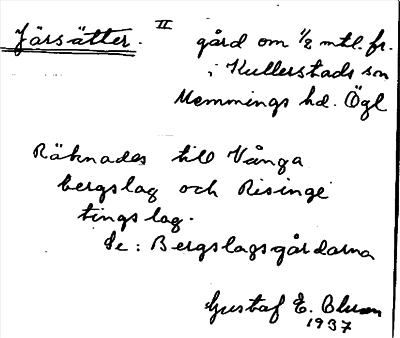 Järsätter. II gård om 1/2 mtl. fr.
i Kullerstads sn
Memmings hd. Ögl
Räknades till Vånga
bergslag och Risinge
tingslag.
Se: Bergslagsgårdarna
Gustaf E. Blman
1937